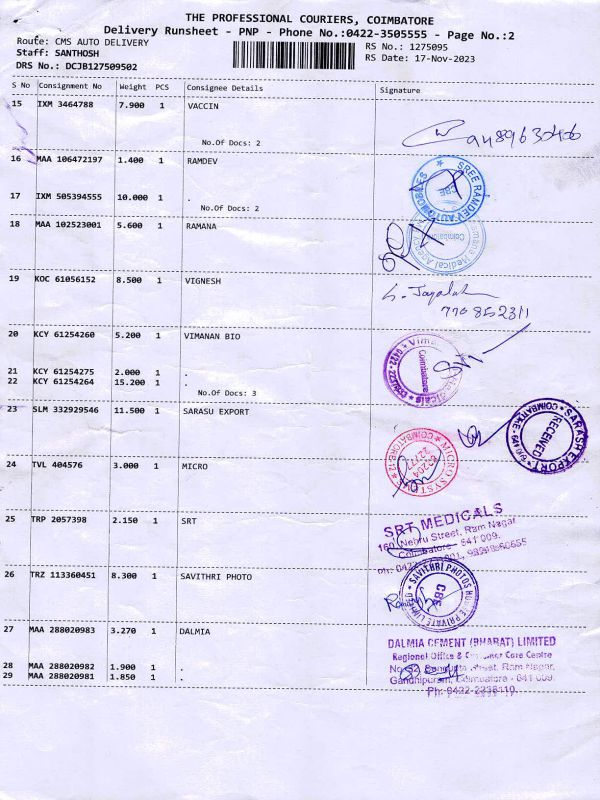 THE PROFESSIONAL COURIERS, COIMBATORE
Delivery Runsheet - PNP - Phone No.:0422-3505555 - Page No.:2
Route: CMS AUTO DELIVERY
Staff: SANTHOSH
DRS No.: DCJB127509502
RS No.: 1275095
RS Date: 17-Nov-2023
S No Consignment No Weight PCS Consignee Details Signature
15 IXM 3464788 7.900 1 VACCIN
No.Of Docs: 2
16 MAA 106472197 1.400 1 RAMDEV
SREE RAMDEV AUTOMOBILES
CBE
17 IXM 505394555 10.000 1 .
No.Of Docs: 2
18 MAA 102523001 5.600 1 RAMANA
Medical Agency
Coimbatore
19 KOC 61056152 8.500 1 VIGNESH
20 KCY 61254260 5.200 1 VIMANAN BIO
Coimbatore
21 KCY 61254275 2.000 1 .
22 KCY 61254264 15.200 1 .
No.Of Docs: 3
23 SLM 332929546 11.500 1 SARASU EXPORT
SARASH EXPORT
RECEIVED
24 TVL 404576 3.000 1 MICRO
COIMBATORE-12
25 TRP 2057398 2.150 1 SRT
SRT MEDICALS
160, Nehru Street, Ram Nagar,
Coimbatore - 641 009.
26 TRZ 113360451 8.300 1 SAVITHRI PHOTO
SAVITHRI PHOTOS HOUSE PRIVATE LIMITED
CBE
27 MAA 288020983 3.270 1 DALMIA
DALMIA CEMENT (BHARAT) LIMITED
Regional Office & Customer Care Centre
Street, Ram Nagar,
Gandhipuram, Coimbatore - 641 009.
Ph: 0422-2236110
28 MAA 288020982 1.900 1
29 MAA 288020981 1.850 1 .